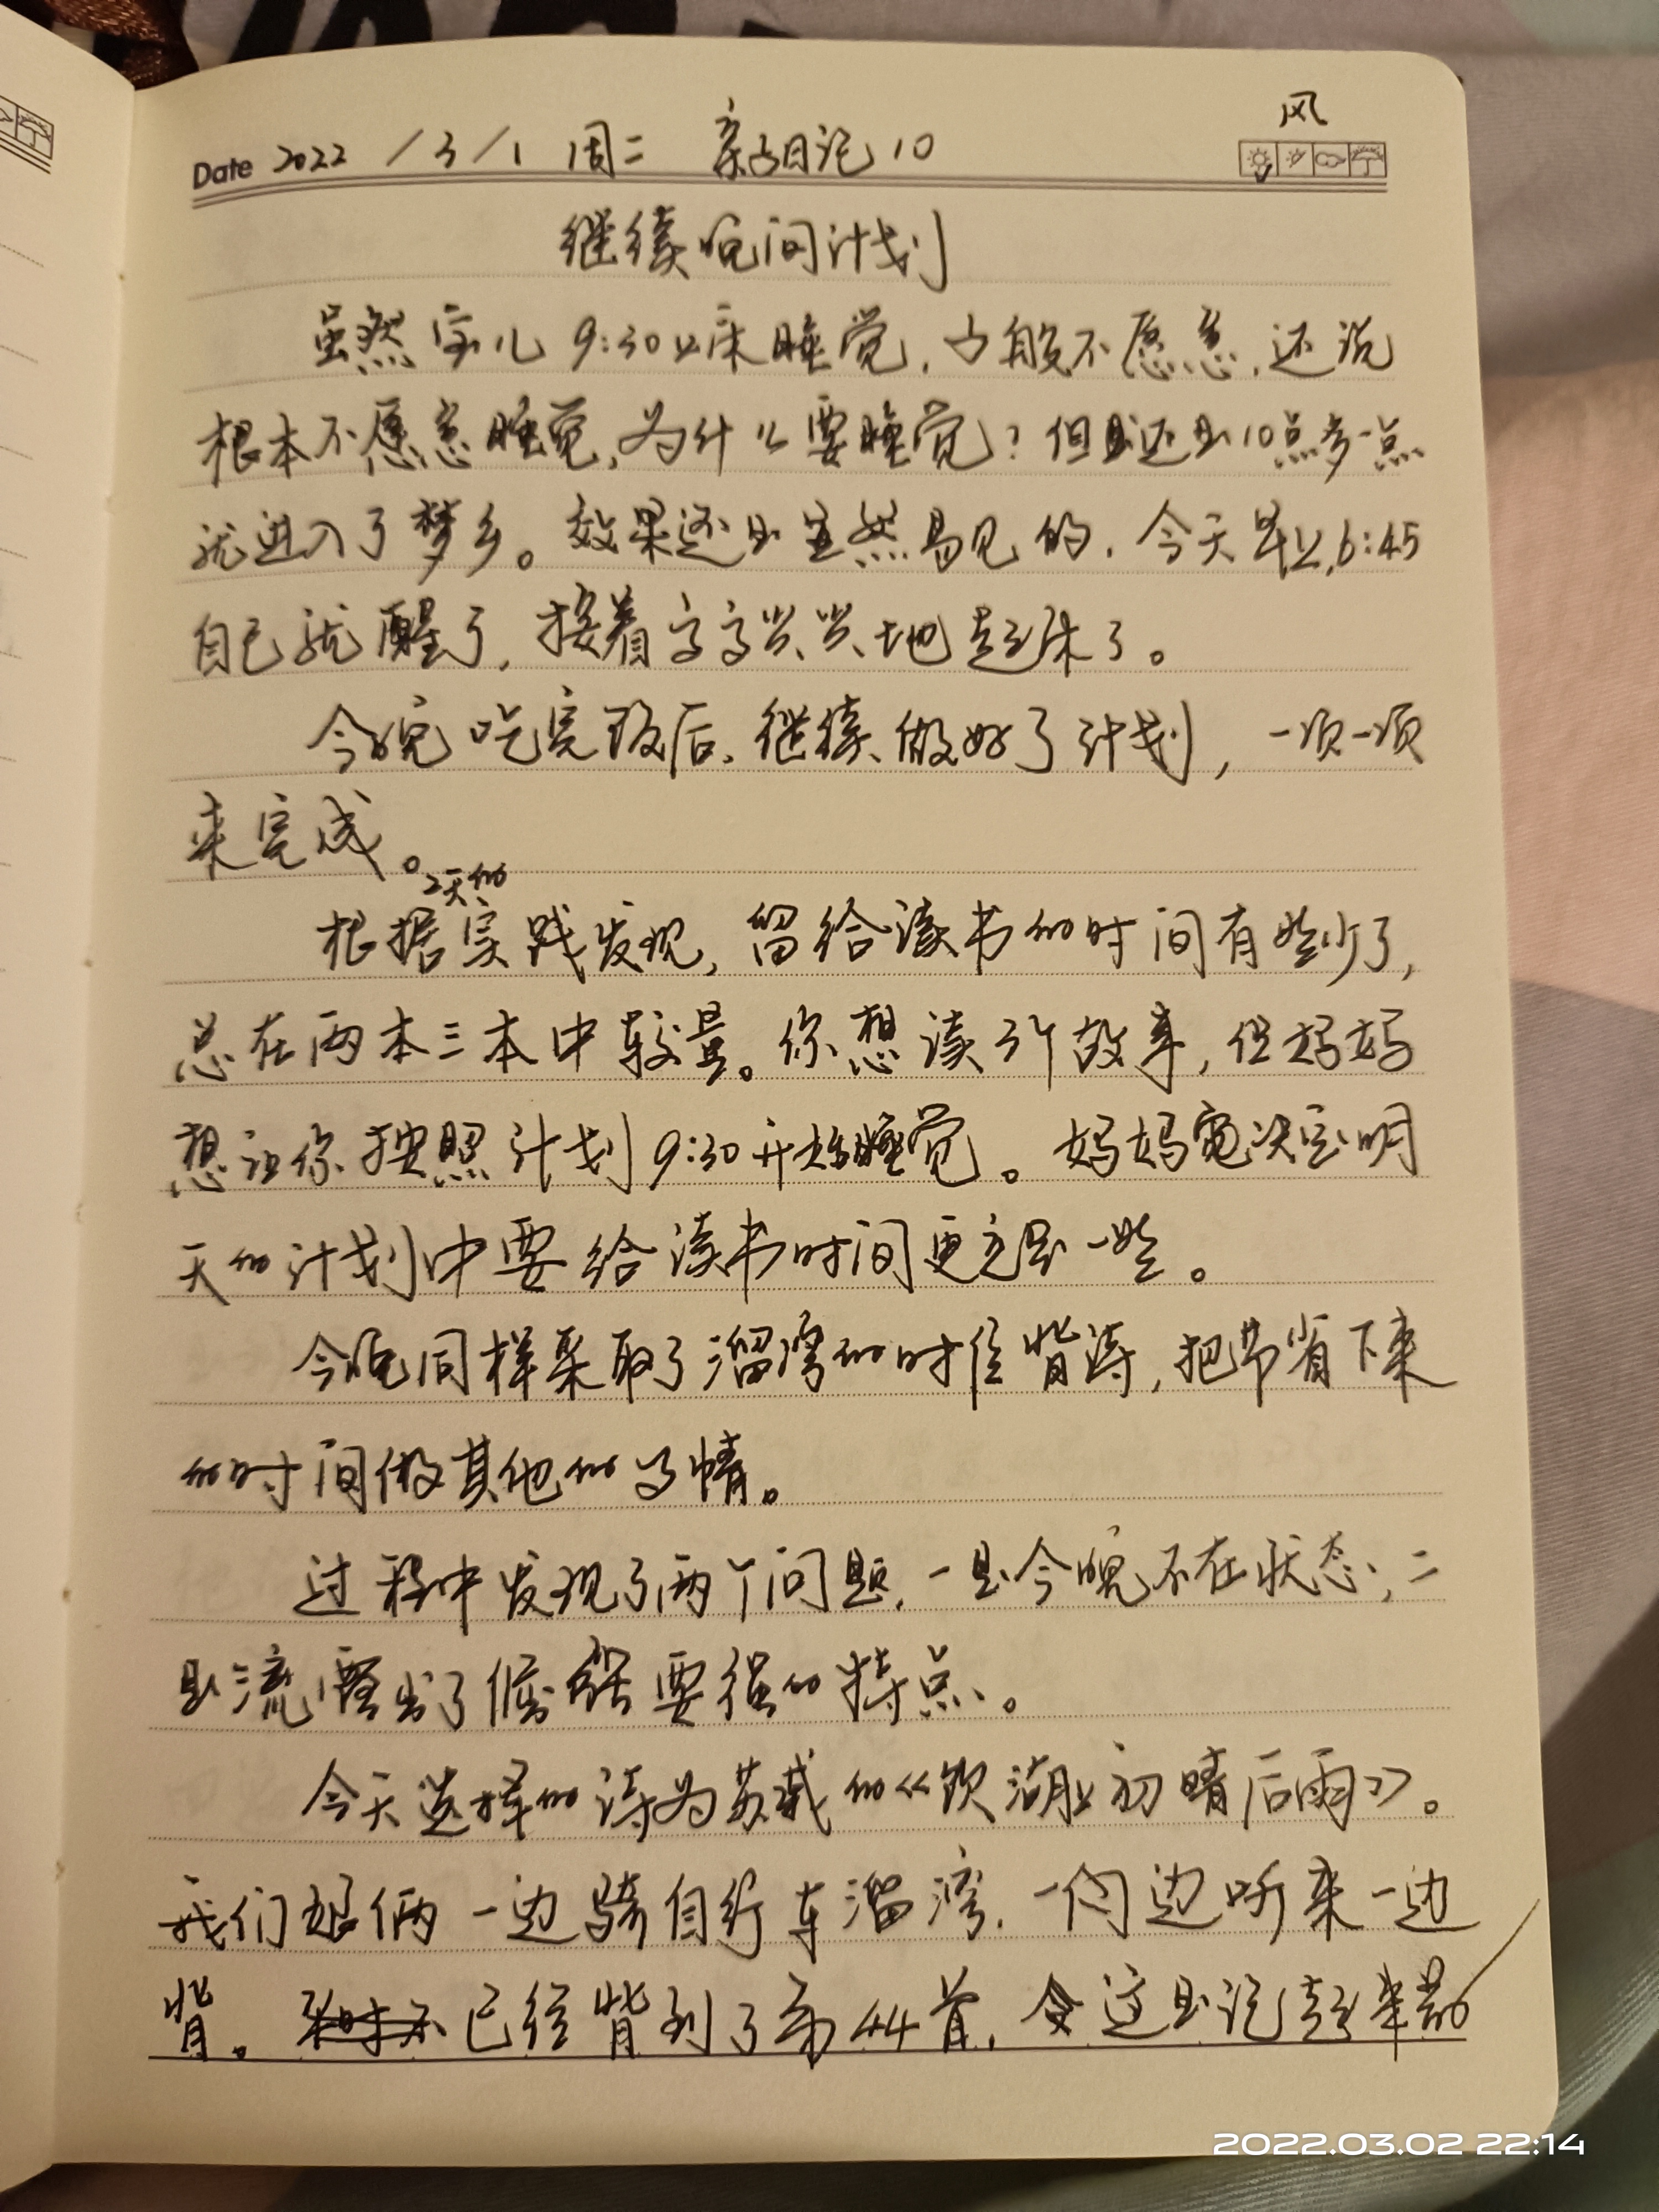 风
Date 2022 / 3 / 1 周二 亲子日记 10
继续晚间计划
虽然宝儿 9:30上床睡觉，百般不愿意，还说
根本不愿意睡觉，为什么要睡觉？但是还是10点多一点
就进入了梦乡。效果还是显然易见的，今天早上6:45
自己就醒了，接着高高兴兴地起床了。
今晚吃完饭后，继续做好了计划，一项一项
来完成。
2天的
根据实践发现，留给读书的时间有些少了，
总在两本三本中较量。你想读3个故事，但妈妈
想让你按照计划9:30开始睡觉。妈妈决定明
天的计划中要给读书时间更充足一些。
今晚同样采取了溜湾的时候背诗，把节省下来
的时间做其他的事情。
过程中发现了两个问题，一是今晚不在状态；二
是流露出了倔强要强的特点。
今天选择的诗为苏轼的《饮湖上初晴后雨》。
我们娘俩一边骑自行车溜湾，一边听来一边
背。已经背到了第44首，这是记起来最
2022.03.02 22:14